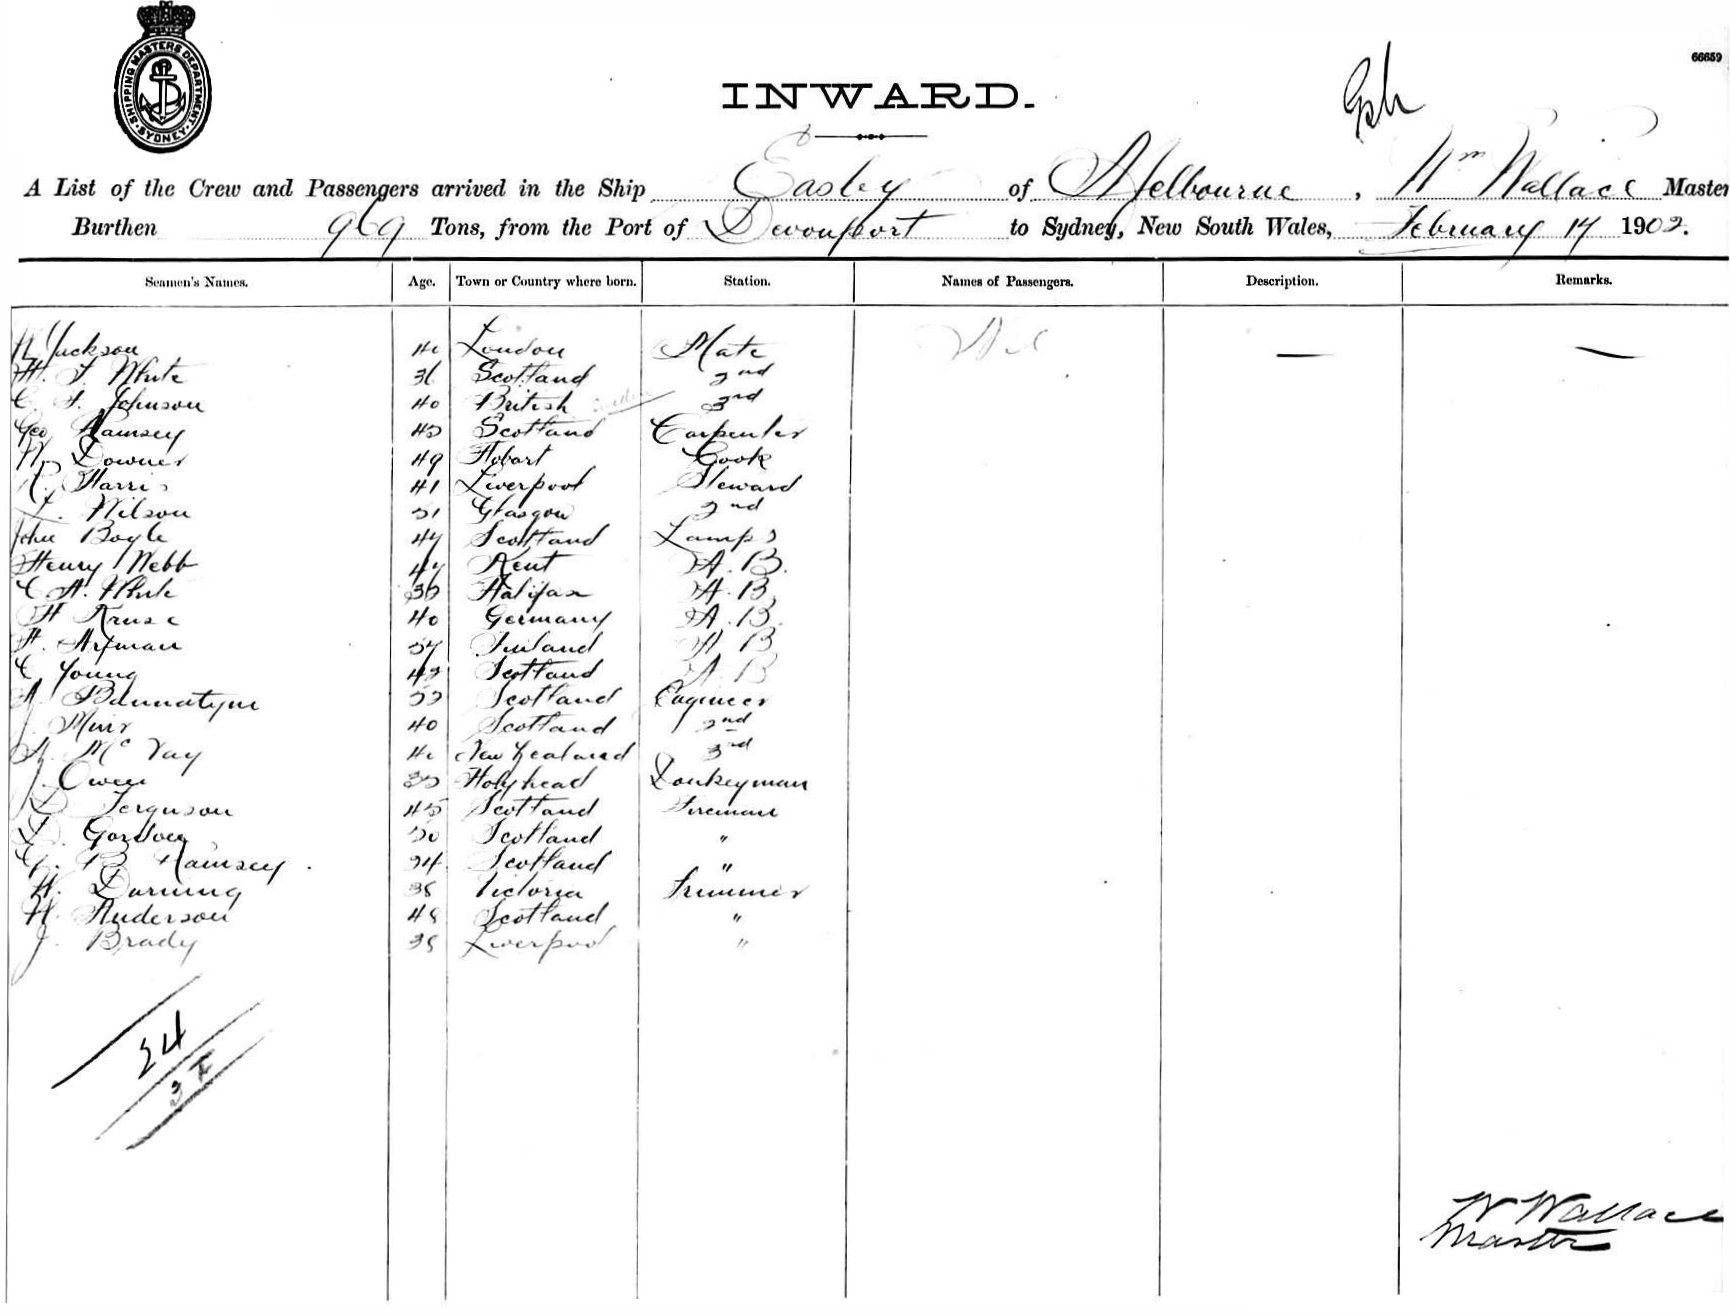 SHIPPING MASTERS DEPARTMENT SYDNEY
66659
INWARD.
A List of the Crew and Passengers arrived in the Ship Easby of Melbourne, Wm Wallace Master
Burthen 969 Tons, from the Port of Devonport to Sydney, New South Wales, February 17 1902.
Seamen's Names. Age. Town or Country where born. Station. Names of Passengers. Description. Remarks.
Jackson London Mate Nil — —
H. F. White 36 Scotland 2nd
C. F. Johnson 40 British 3rd
Geo Ramsey Scotland Carpenter
Downer 49 Hobart Cook
Harris 41 Liverpool Steward
Wilson Glasgow 2nd
John Boyle 44 Scotland Lamps
Henry Webb Kent A.B.
C. A. White Halifax A.B.
H Kruse 40 Germany A.B.
H. Finland A B
C Young Scotland A B
Scotland Engineer
J. Muir 40 Scotland 2nd
Mc Vay New Zealand 3rd
J. Owen Holyhead Donkeyman
D Ferguson 45 Scotland Fireman
D. Gordon Scotland "
G. B. Ramsey 24 Scotland "
W. Victoria Trimmer
H. Anderson 48 Scotland "
J. Brady 38 Liverpool "
24
W Wallace
Master